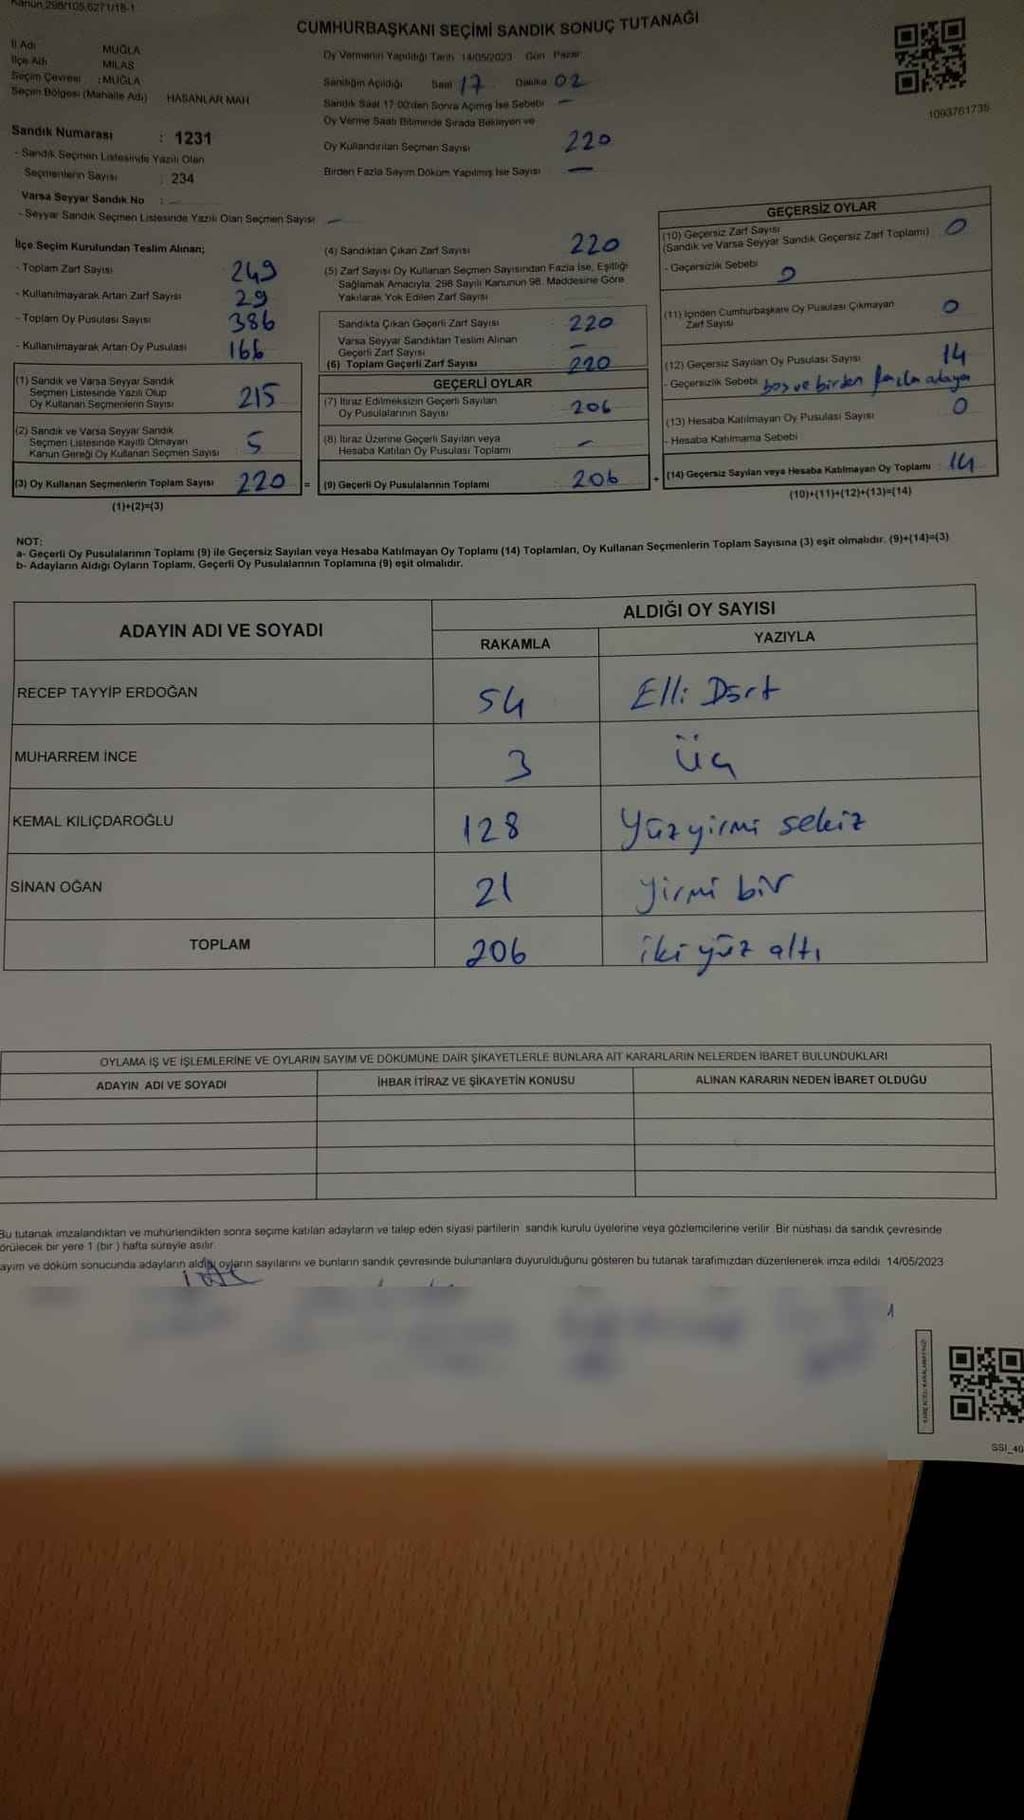 Kanun 298/105,6271/18-1
CUMHURBAŞKANI SEÇİMİ SANDIK SONUÇ TUTANAĞI
İl Adı MUĞLA
İlçe Adı MİLAS
Seçim Çevresi : MUĞLA
Seçim Bölgesi (Mahalle Adı) HASANLAR MAH
Sandık Numarası : 1231
- Sandık Seçmen Listesinde Yazılı Olan
Seçmenlerin Sayısı : 234
Varsa Seyyar Sandık No : -
- Seyyar Sandık Seçmen Listesinde Yazılı Olan Seçmen Sayısı -
Oy Vermenin Yapıldığı Tarih 14/05/2023 Gün Pazar
Sandığın Açıldığı Saat 17 Dakika 02
Sandık Saat 17:00'den Sonra Açılmış İse Sebebi -
Oy Verme Saati Bitiminde Sırada Bekleyen ve
Oy Kullandırılan Seçmen Sayısı 220
Birden Fazla Sayım Döküm Yapılmış İse Sayısı -
1093761735
İlçe Seçim Kurulundan Teslim Alınan;
- Toplam Zarf Sayısı 249
- Kullanılmayarak Artan Zarf Sayısı 29
- Toplam Oy Pusulası Sayısı 386
- Kullanılmayarak Artan Oy Pusulası 166
(1) Sandık ve Varsa Seyyar Sandık
Seçmen Listesinde Yazılı Olup
Oy Kullanan Seçmenlerin Sayısı 215
(2) Sandık ve Varsa Seyyar Sandık
Seçmen Listesinde Kayıtlı Olmayan
Kanun Gereği Oy Kullanan Seçmen Sayısı 5
(3) Oy Kullanan Seçmenlerin Toplam Sayısı 220 =
(1)+(2)=(3)
(4) Sandıktan Çıkan Zarf Sayısı 220
(5) Zarf Sayısı Oy Kullanan Seçmen Sayısından Fazla İse, Eşitliği
Sağlamak Amacıyla, 298 Sayılı Kanunun 98. Maddesine Göre
Yakılarak Yok Edilen Zarf Sayısı
Sandıkta Çıkan Geçerli Zarf Sayısı 220
Varsa Seyyar Sandıktan Teslim Alınan
Geçerli Zarf Sayısı -
(6) Toplam Geçerli Zarf Sayısı 220
GEÇERLİ OYLAR
(7) İtiraz Edilmeksizin Geçerli Sayılan
Oy Pusulalarının Sayısı 206
(8) İtiraz Üzerine Geçerli Sayılan veya
Hesaba Katılan Oy Pusulası Toplamı -
(9) Geçerli Oy Pusulalarının Toplamı 206 +
GEÇERSİZ OYLAR
(10) Geçersiz Zarf Sayısı
(Sandık ve Varsa Seyyar Sandık Geçersiz Zarf Toplamı) 0
- Geçersizlik Sebebi
0
(11) İçinden Cumhurbaşkanı Oy Pusulası Çıkmayan
Zarf Sayısı 0
(12) Geçersiz Sayılan Oy Pusulası Sayısı 14
- Geçersizlik Sebebi boş ve birden fazla adaya
(13) Hesaba Katılmayan Oy Pusulası Sayısı 0
- Hesaba Katılmama Sebebi
(14) Geçersiz Sayılan veya Hesaba Katılmayan Oy Toplamı 14
(10)+(11)+(12)+(13)=(14)
NOT:
a- Geçerli Oy Pusulalarının Toplamı (9) ile Geçersiz Sayılan veya Hesaba Katılmayan Oy Toplamı (14) Toplamları, Oy Kullanan Seçmenlerin Toplam Sayısına (3) eşit olmalıdır. (9)+(14)=(3)
b- Adayların Aldığı Oyların Toplamı, Geçerli Oy Pusulalarının Toplamına (9) eşit olmalıdır.
ADAYIN ADI VE SOYADI ALDIĞI OY SAYISI
RAKAMLA YAZIYLA
RECEP TAYYİP ERDOĞAN 54 Elli Dört
MUHARREM İNCE 3 üç
KEMAL KILIÇDAROĞLU 128 Yüzyirmi sekiz
SİNAN OĞAN 21 yirmi bir
TOPLAM 206 iki yüz altı
OYLAMA İŞ VE İŞLEMLERİNE VE OYLARIN SAYIM VE DÖKÜMÜNE DAİR ŞİKAYETLERLE BUNLARA AİT KARARLARIN NELERDEN İBARET BULUNDUKLARI
ADAYIN ADI VE SOYADI İHBAR İTİRAZ VE ŞİKAYETİN KONUSU ALINAN KARARIN NEDEN İBARET OLDUĞU
Bu tutanak imzalandıktan ve mühürlendikten sonra seçime katılan adayların ve talep eden siyasi partilerin sandık kurulu üyelerine veya gözlemcilerine verilir. Bir nüshası da sandık çevresinde
örülecek bir yere 1 (bir ) hafta süreyle asılır.
ayım ve döküm sonucunda adayların aldığı oyların sayılarını ve bunların sandık çevresinde bulunanlara duyurulduğunu gösteren bu tutanak tarafımızdan düzenlenerek imza edildi 14/05/2023
1
SSI_40